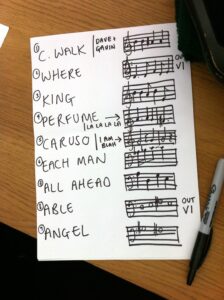 ① C. WALK DAVE + GAVIN
② WHERE OUT V1
③ KING
④ PERFUME LA LA LA LA
⑤ CARUSO I AM BLAH
⑥ EACH MAN
⑦ ALL AHEAD
⑧ ABLE OUT V1
⑨ ANGEL